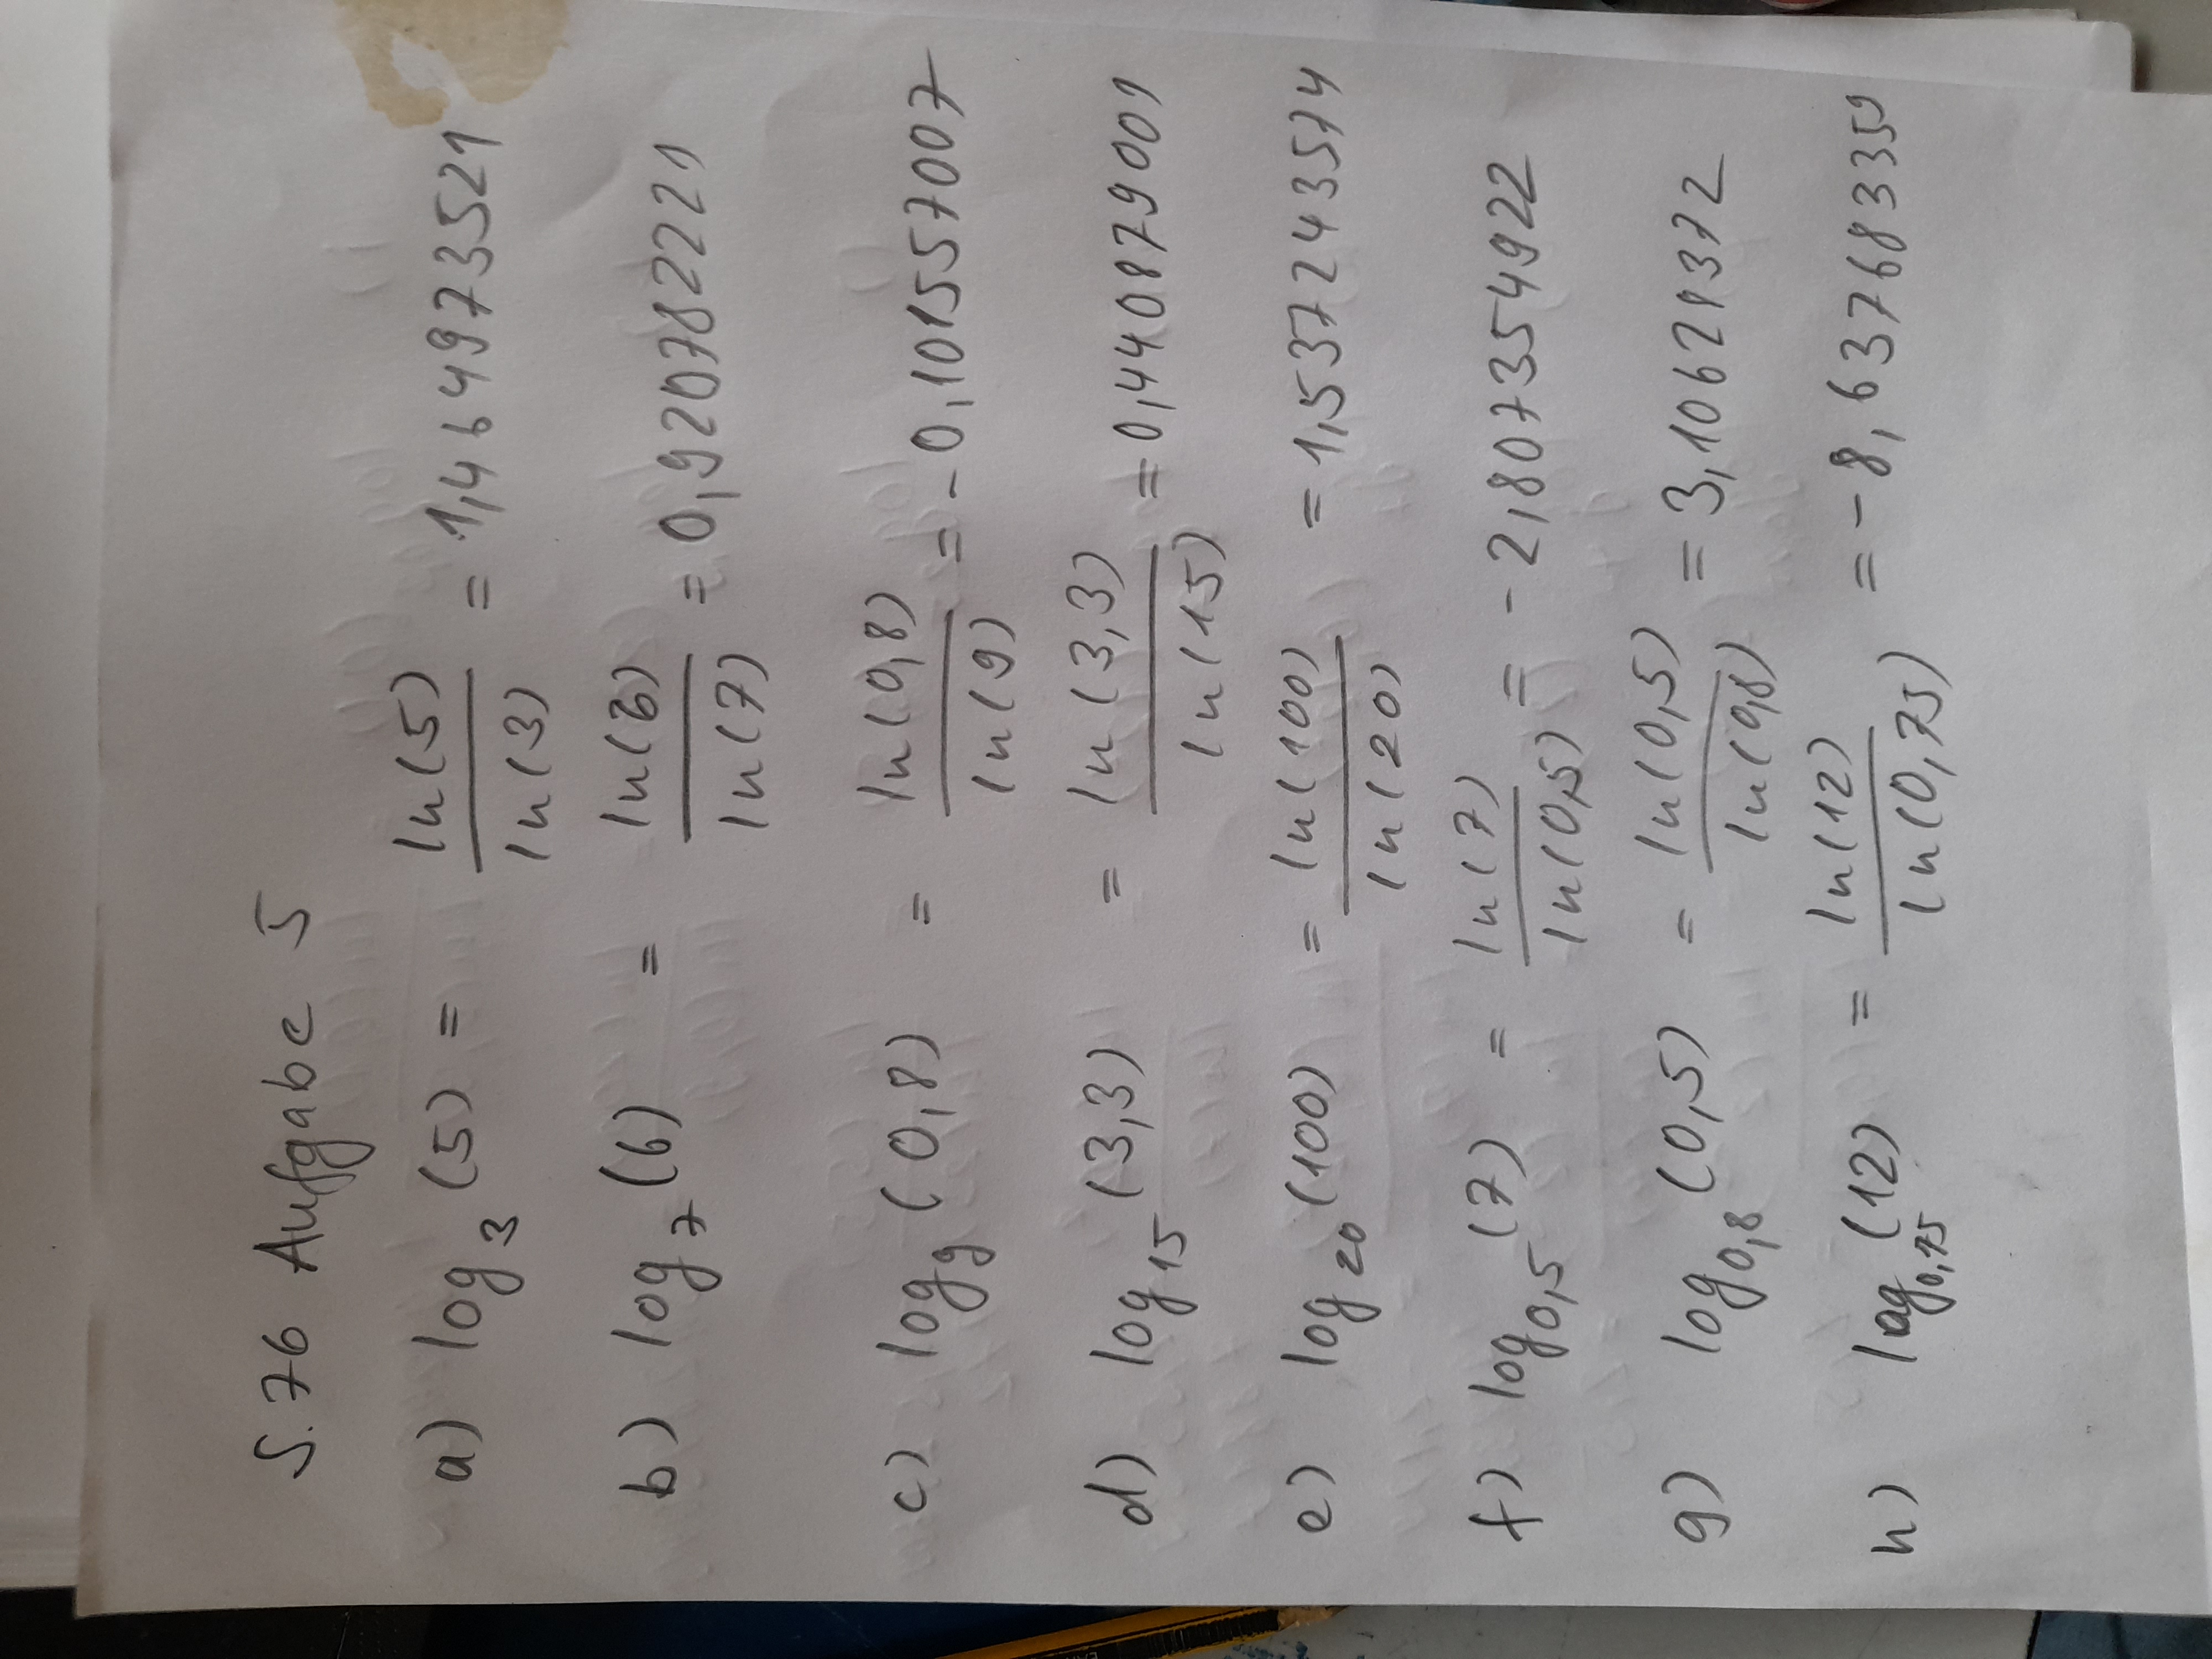 S. 76 Aufgabe 5
a) log₃(5) = ln(5)/ln(3) = 1,464973521
b) log₇(6) = ln(6)/ln(7) = 0,9207822211
c) log₉(0,8) = ln(0,8)/ln(9) = -0,101557007
d) log₁₅(3,3) = ln(3,3)/ln(15) = 0,440879001
e) log₂₀(100) = ln(100)/ln(20) = 1,537243574
f) log₀,₅(7) = ln(7)/ln(0,5) = -2,807354922
g) log₀,₈(0,5) = ln(0,5)/ln(0,8) = 3,106281372
h) log₀,₇₅(12) = ln(12)/ln(0,75) = -8,637683359